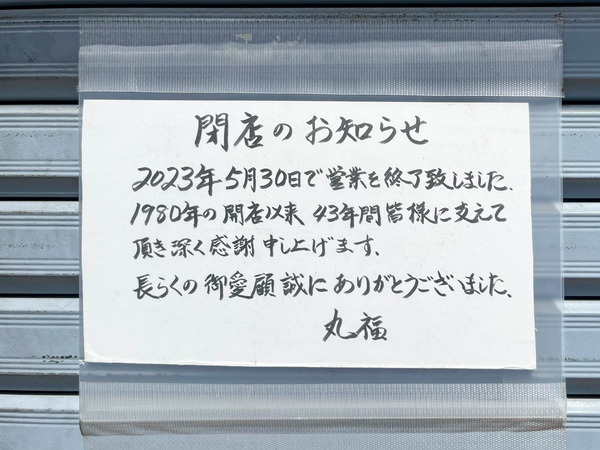 閉店のお知らせ
2023年5月30日で営業を終了致しました、
1980年の開店以来 43年間皆様に支えて
頂き深く感謝申し上げます、
長らくの御愛顧誠にありがとうございました、
丸福